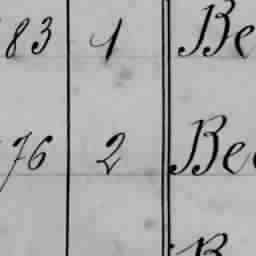 83 1 Be
76 2 Be
B